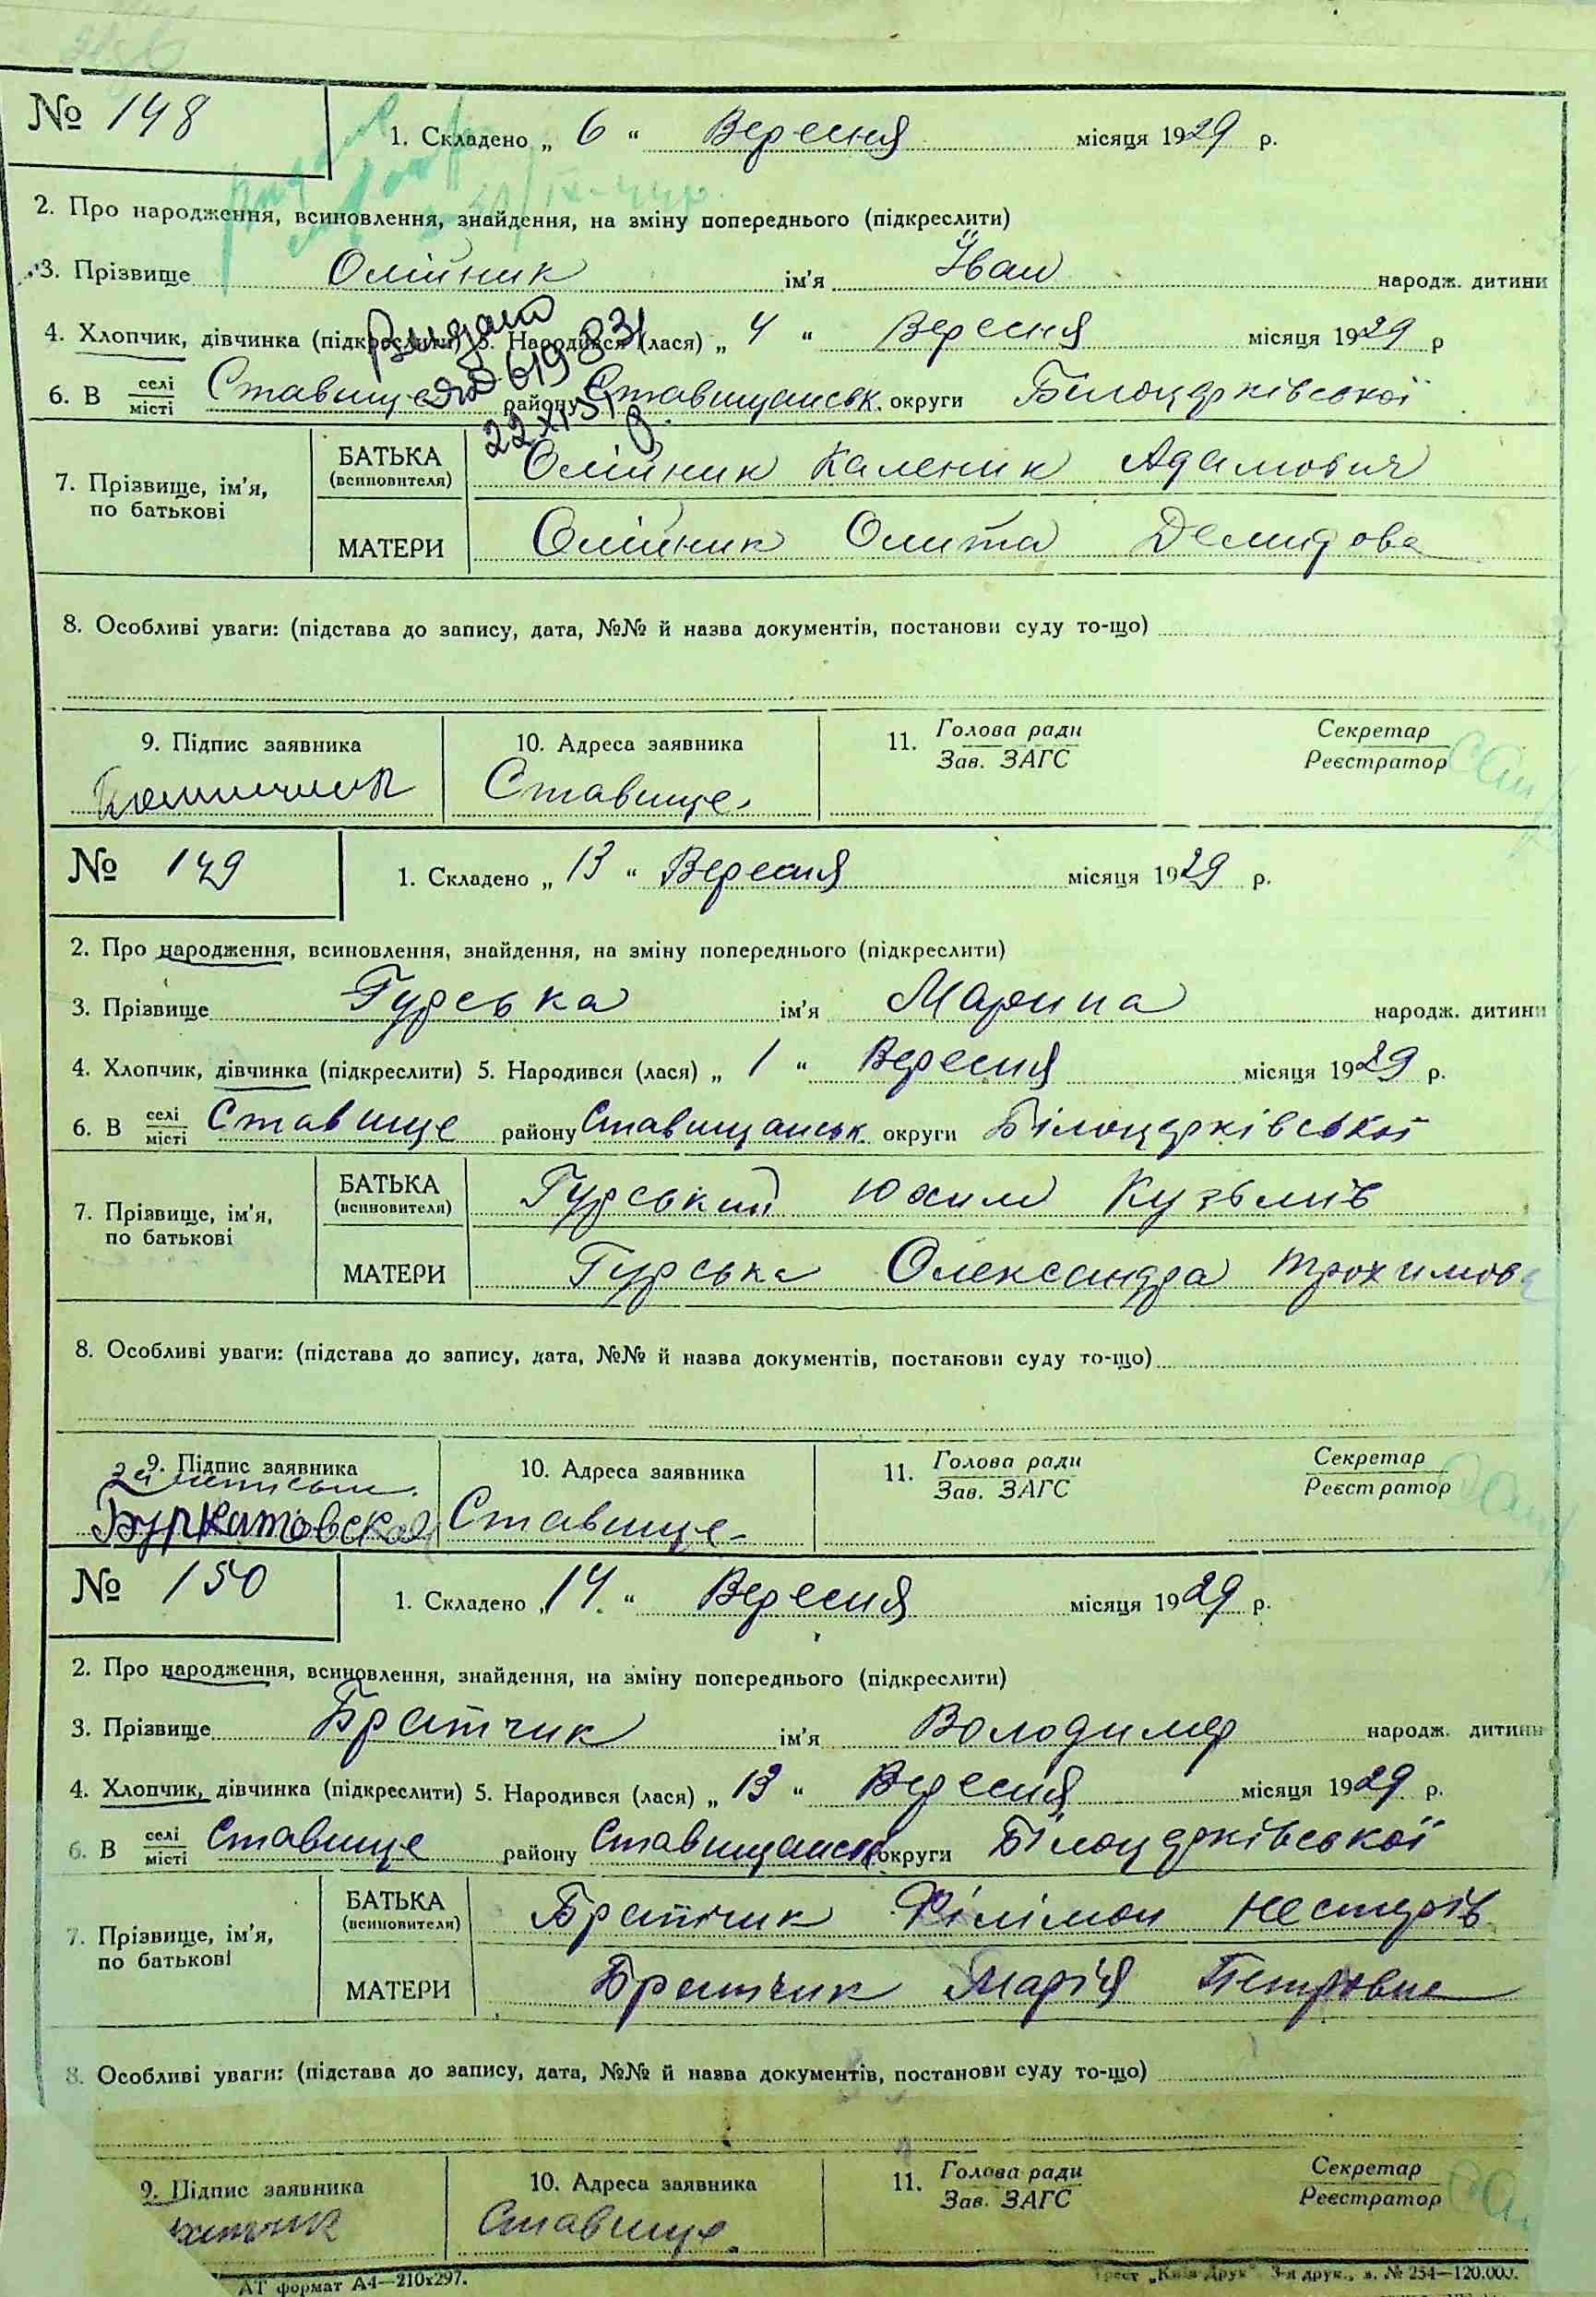 № 148
1. Складено „ 6 “ Вересня місяця 1929 р.
2. Про народження, всиновлення, знайдення, на зміну попереднього (підкреслити)
3. Прізвище Олійник ім'я Іван народж. дитини
4. Хлопчик, дівчинка (підкреслити) 5. Народився (лася) „ 4 “ Вересня місяця 1929 р
Видано
619831
22 XI 51
6. В селі місті Ставище району Ставищанськ. округи Білоцерківської
7. Прізвище, ім'я, по батькові
БАТЬКА (всиновителя) Олійник Каленик Адамович
МАТЕРИ Олійник Олита Демидова
8. Особливі уваги: (підстава до запису, дата, №№ й назва документів, постанови суду то-що)
9. Підпис заявника
10. Адреса заявника
11. Голова ради Зав. ЗАГС
Секретар Реєстратор
Ставище.
№ 149
1. Складено „ 13 “ Вересня місяця 1929 р.
2. Про народження, всиновлення, знайдення, на зміну попереднього (підкреслити)
3. Прізвище Гурська ім'я Марина народж. дитини
4. Хлопчик, дівчинка (підкреслити) 5. Народився (лася) „ 1 “ Вересня місяця 1929 р.
6. В селі місті Ставище району Ставищанськ округи Білоцерківської
7. Прізвище, ім'я, по батькові
БАТЬКА (всиновителя) Гурський Юхим Кузьмів
МАТЕРИ Гурська Олександра Трохимова
8. Особливі уваги: (підстава до запису, дата, №№ й назва документів, постанови суду то-що)
9. Підпис заявника
10. Адреса заявника
11. Голова ради Зав. ЗАГС
Секретар Реєстратор
Буркатовская
Ставище
№ 150
1. Складено „ 14. “ Вересня місяця 1929 р.
2. Про народження, всиновлення, знайдення, на зміну попереднього (підкреслити)
3. Прізвище Братчик ім'я Володимер народж. дитини
4. Хлопчик, дівчинка (підкреслити) 5. Народився (лася) „ 13 “ Вересня місяця 1929 р.
6. В селі місті Ставище району Ставищанськ округи Білоцерківської
7. Прізвище, ім'я, по батькові
БАТЬКА (всиновителя) Братчик Філімон Нестерів
МАТЕРИ Братчик Марія Петровна
8. Особливі уваги: (підстава до запису, дата, №№ й назва документів, постанови суду то-що)
9. Підпис заявника
10. Адреса заявника
11. Голова ради Зав. ЗАГС
Секретар Реєстратор
Ставище.
АТ формат А4—210х297.
Трест „Київ Друк“ 3-я друк., з. № 254—120.000.